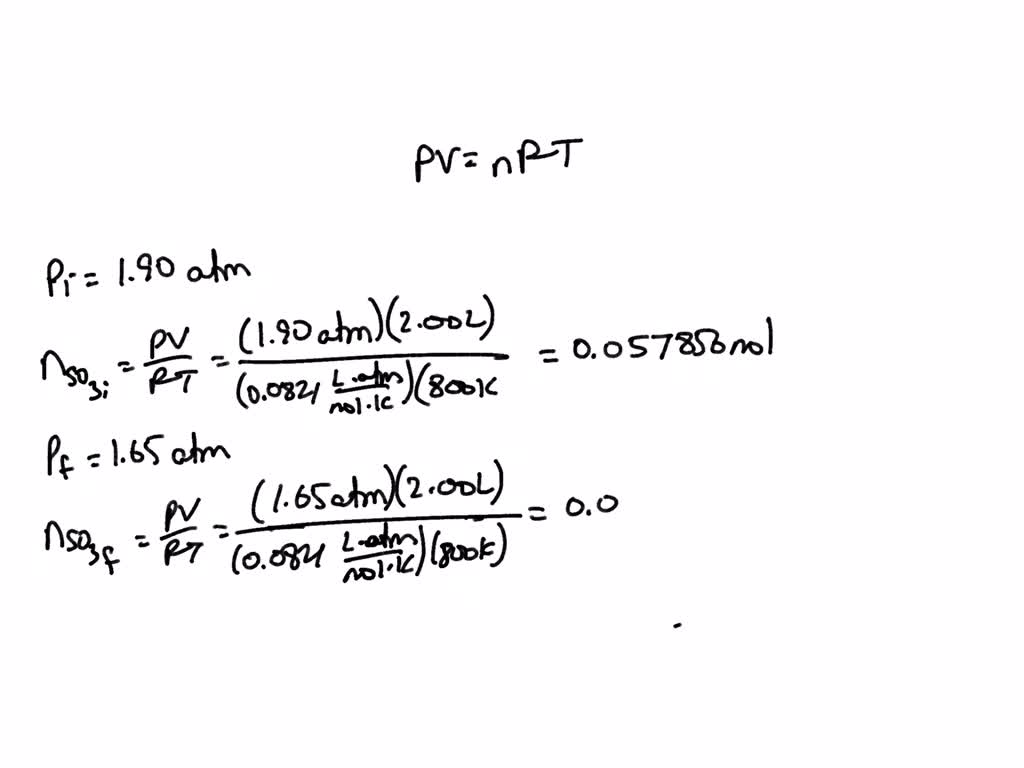 PV = nRT
Pi = 1.90 atm
nSO3i = PV/RT = (1.90 atm)(2.00L)/(0.0821 L.atm/mol.K)(800K = 0.057856 mol
Pf = 1.65 atm
nSO3f = PV/RT = (1.65 atm)(2.00L)/(0.0821 L.atm/mol.K)(800K) = 0.0